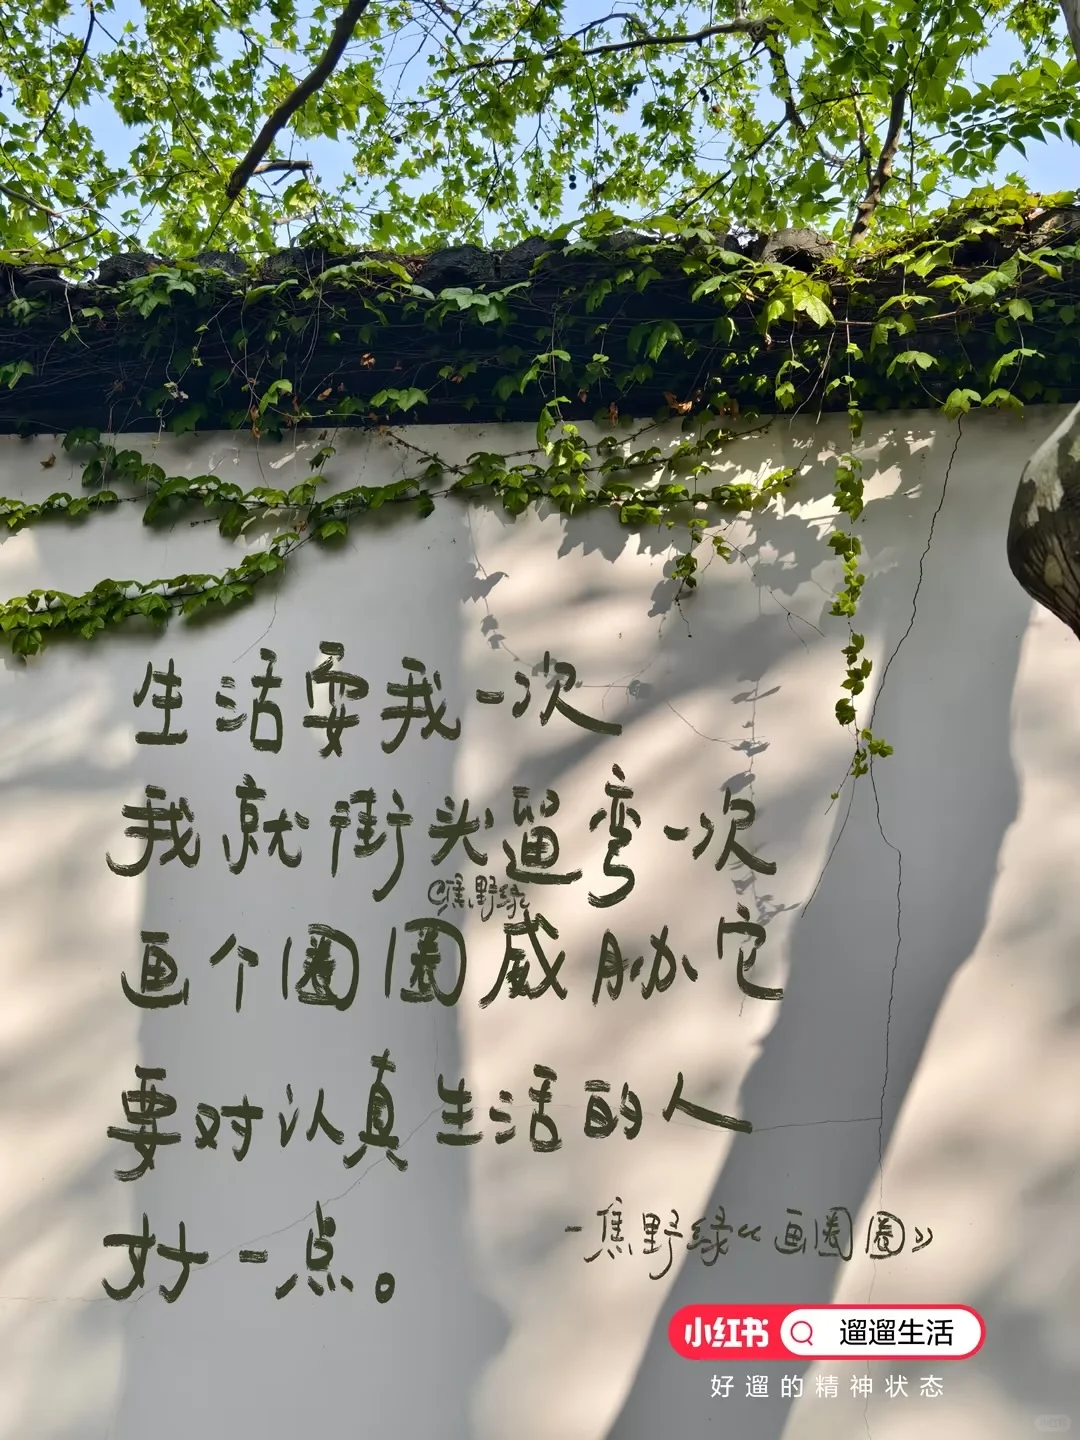 生活耍我一次
我就街头遛弯一次
@焦野绿
画个圈圈威胁它
要对认真生活的人
好一点。
-焦野绿《画圈圈》
小红书 遛遛生活
好遛的精神状态
小红书